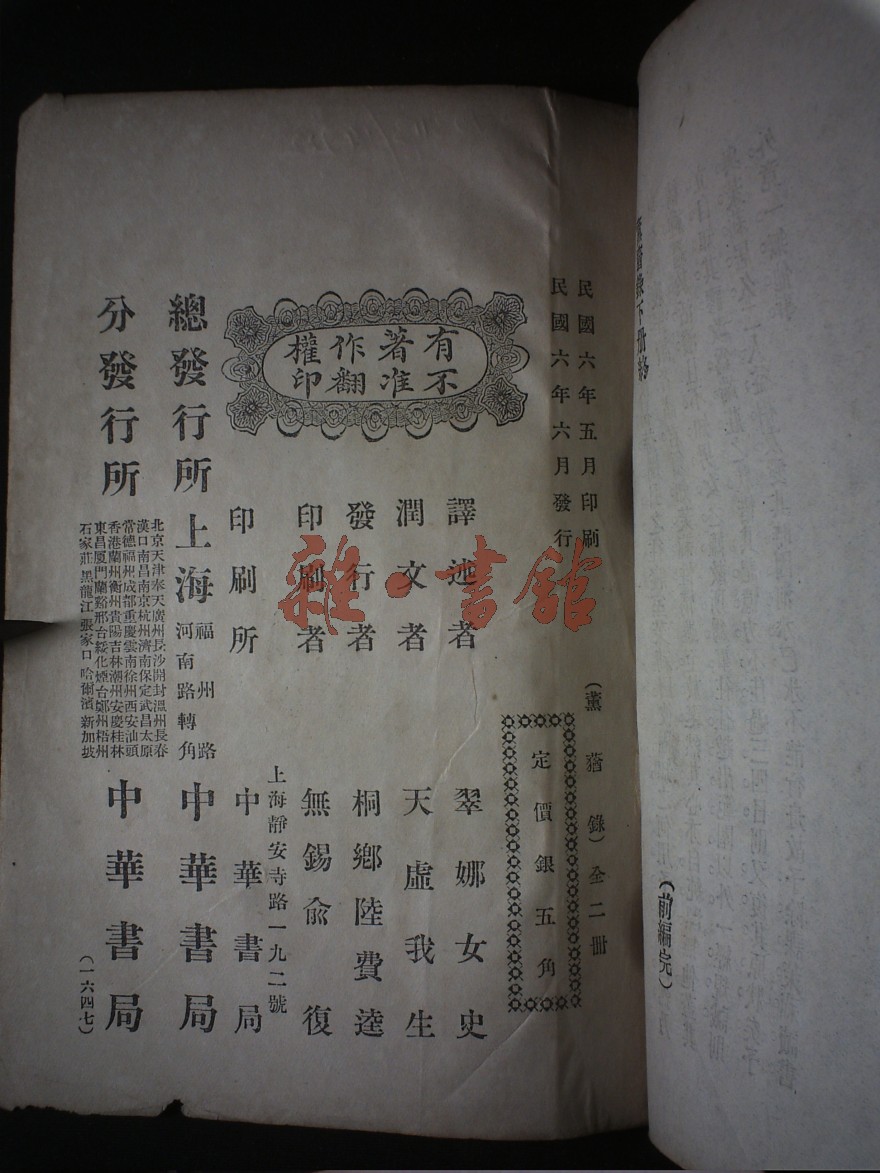 民國六年五月印刷
民國六年六月發行
（薰蕕錄）全二冊
定價銀五角
有著作權
不准翻印
譯述者 翠娜女史
潤文者 天虛我生
發行者 桐鄉陸費逵
印刷者 無錫俞復
印刷所 上海靜安寺路一九二號 中華書局
總發行所 上海 福州路河南路轉角 中華書局
分發行所 中華書局
北京天津奉天廣州長沙開封溫州長春
漢口南昌南京杭州濟南保定武昌太原
常德福州成都重慶雲南徐州西安汕頭
香港蘭州衡州貴陽吉林潮州安慶桂林
東昌厦門蘭谿邢台綏化煙台鄭州梧州
石家莊 黑龍江 張家口 哈爾濱 新加坡
（一六四七）
（前編完）
雜·書館